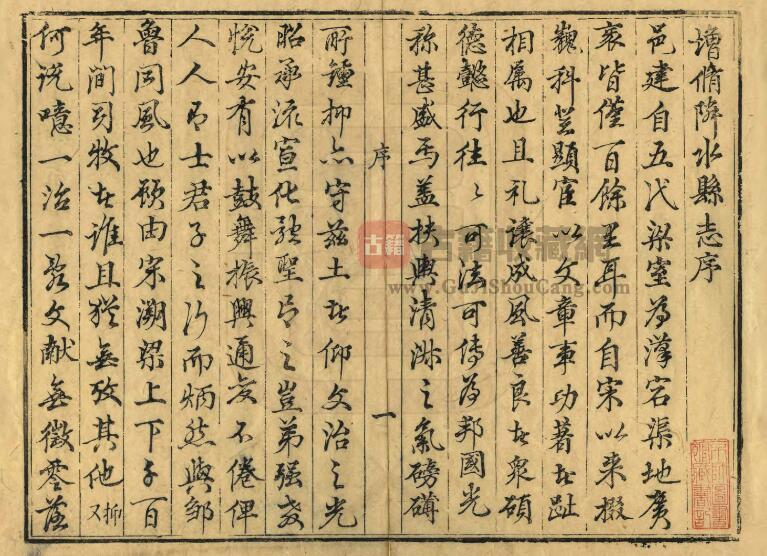 增脩隣水縣志序
邑建自五代梁室為漢宕渠地廣
袤皆僅百餘里耳而自宋以来掇
巍科登顯宦以文章事功著者趾
相属也且礼讓成風善良者衆碩
德懿行往〻可法可傳為邦國光
称甚盛焉盖扶輿清淑之氣磅礴
序
一
所鍾抑亦守兹土者仰文治之光
昭承流宣化聖之豈弟强教
悦安有以鼓舞振興通變不倦俾
人人乃士君子之行而炳然與鄒
魯同風也顾由宋溯梁上下千百
年間司牧者谁且猶無攷其他抑又
何说噫一治一乱文献無徵零落
古籍
古籍收藏網
www.GuJiShouCang.com